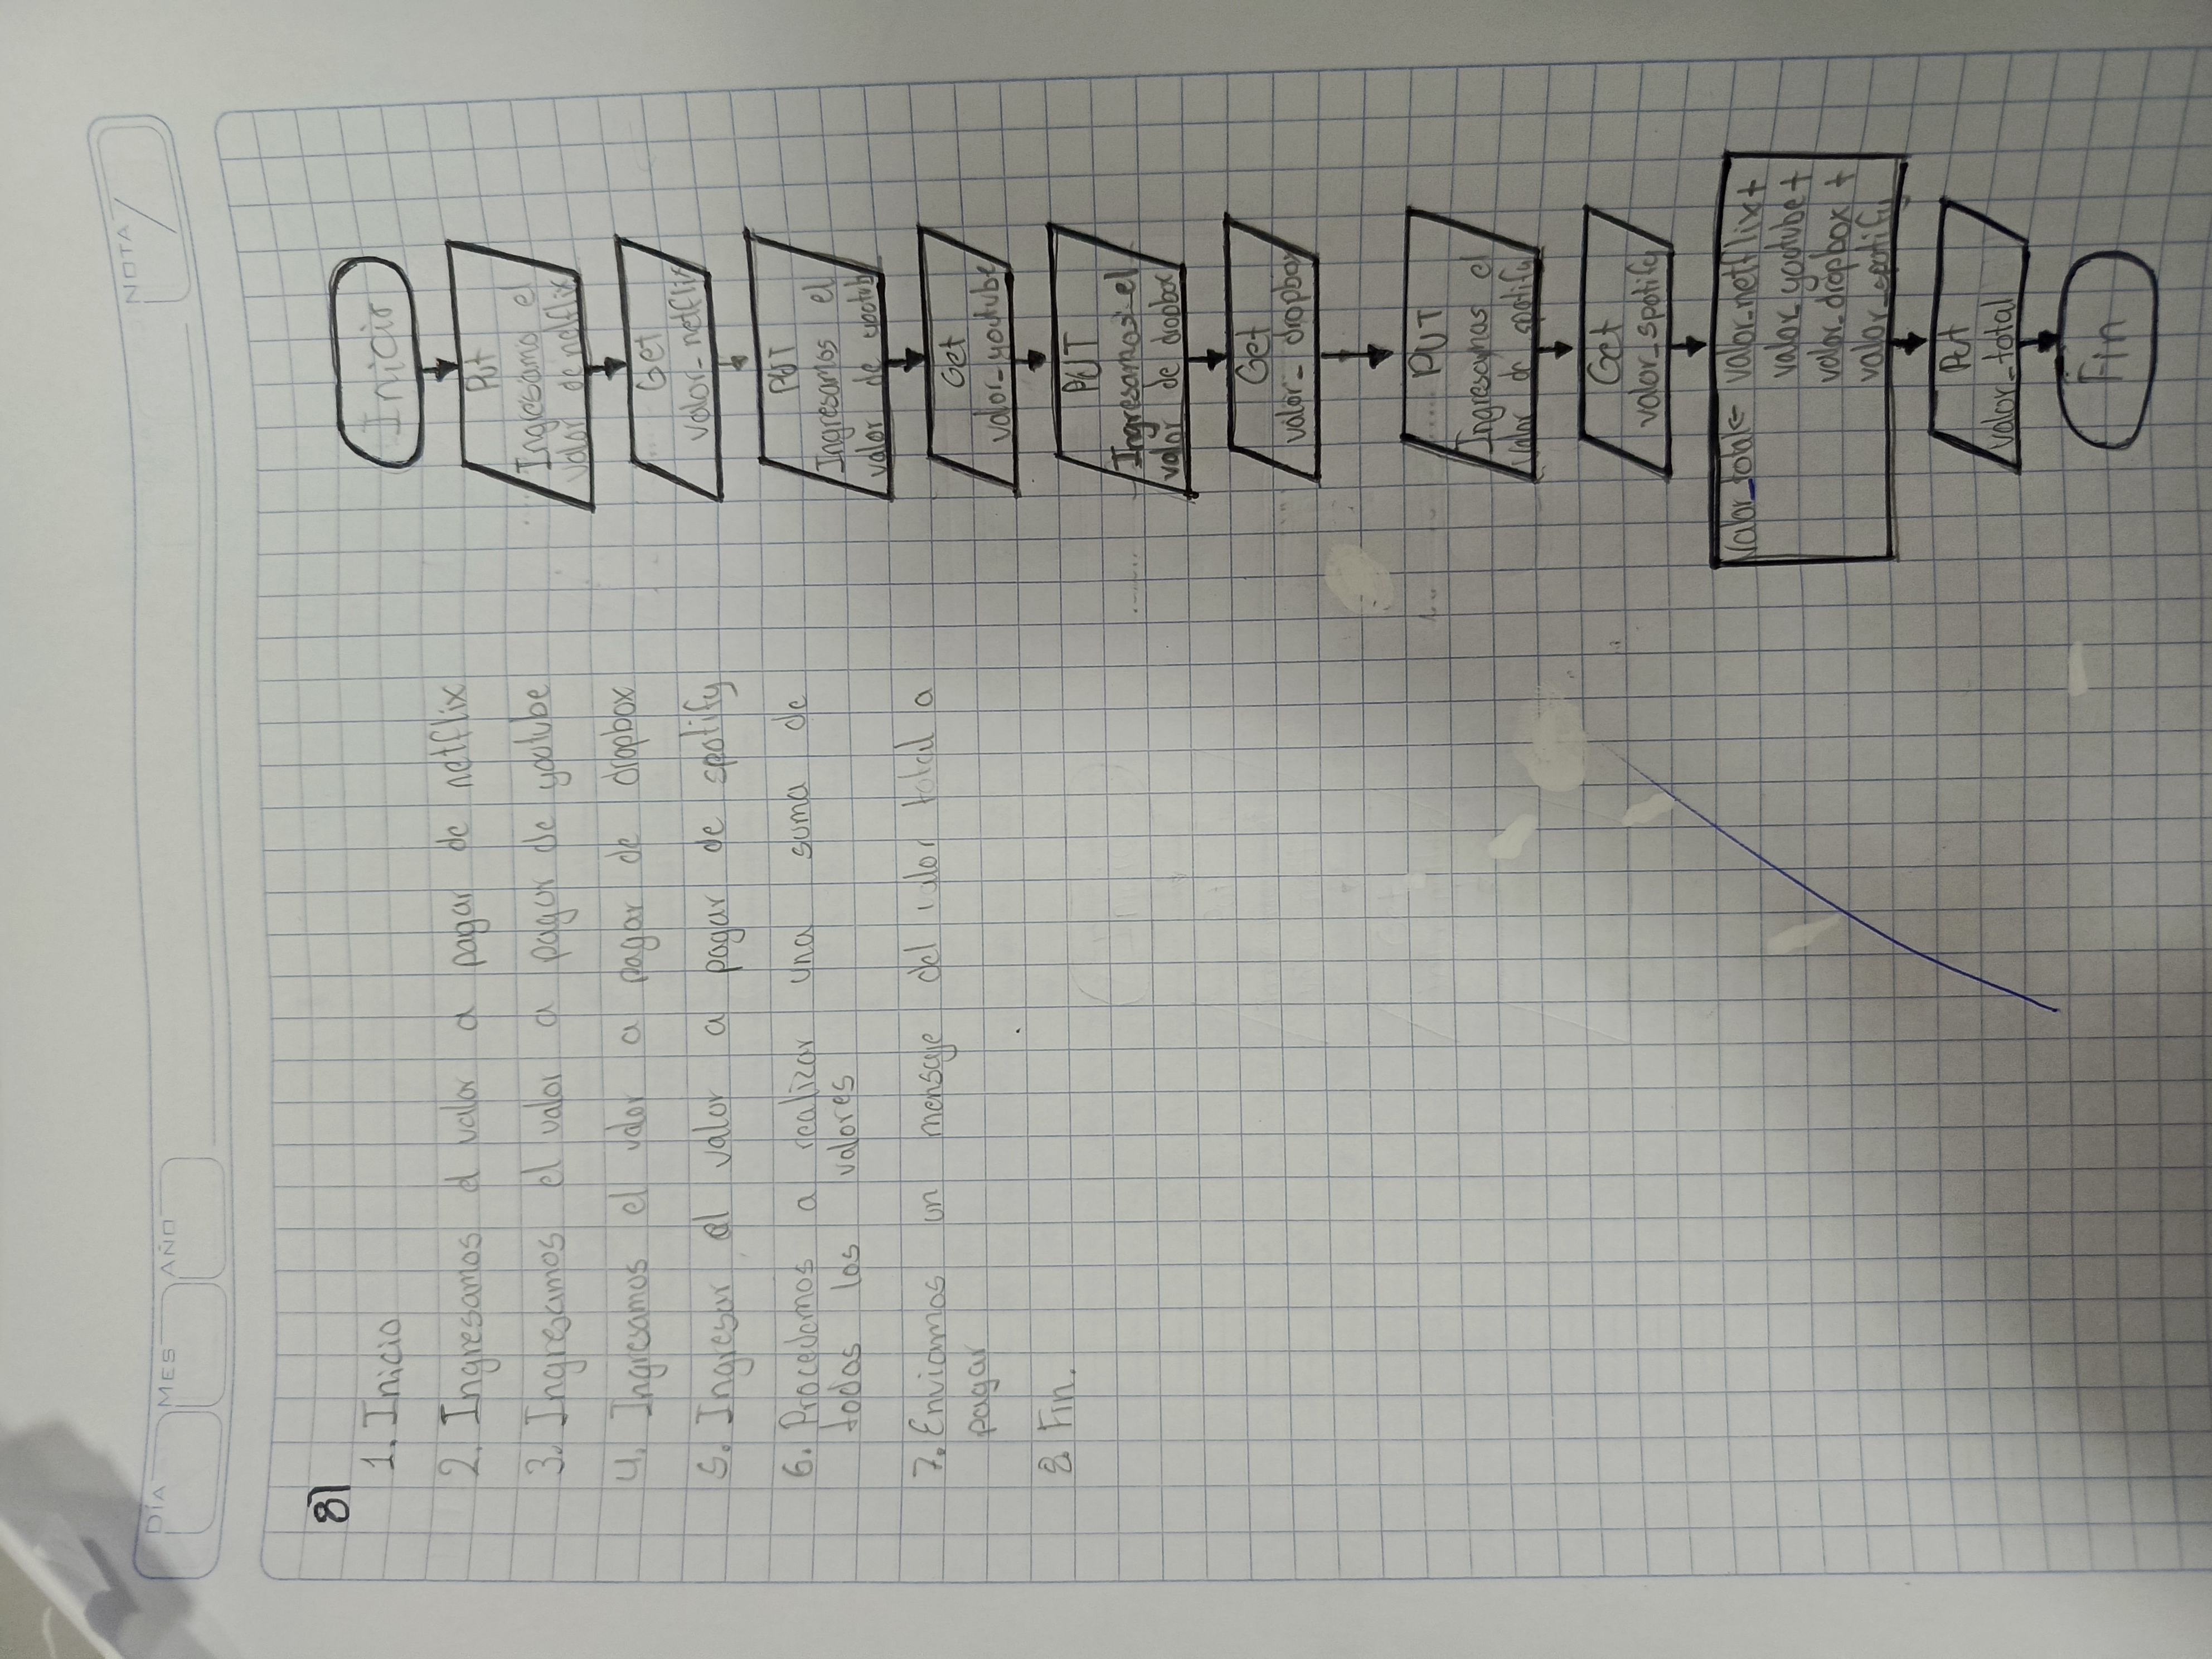 DÍA MES AÑO
NOTA
8)
1. Inicio
2. Ingresamos el valor a pagar de netflix
3. Ingresamos el valor a pagar de youtube
4. Ingresamos el valor a pagar de dropbox
5. Ingresar el valor a pagar de spotify
6. Procedemos a realizar una suma de
todos los valores
7. Enviamos un mensaje del valor total a
pagar
8. Fin.
Inicio
Put
Ingresamo el
valor de netflix
Get
valor_netflix
PUT
Ingresamos el
valor de youtube
Get
valor_youtube
PUT
Ingresamos el
valor de dropbox
Get
valor_dropbox
PUT
Ingresamos el
valor de spotify
Get
valor_spotify
Valor_total= valor_netflix+
valor_youtube+
valor_dropbox+
valor_spotify
Put
valor_total
Fin